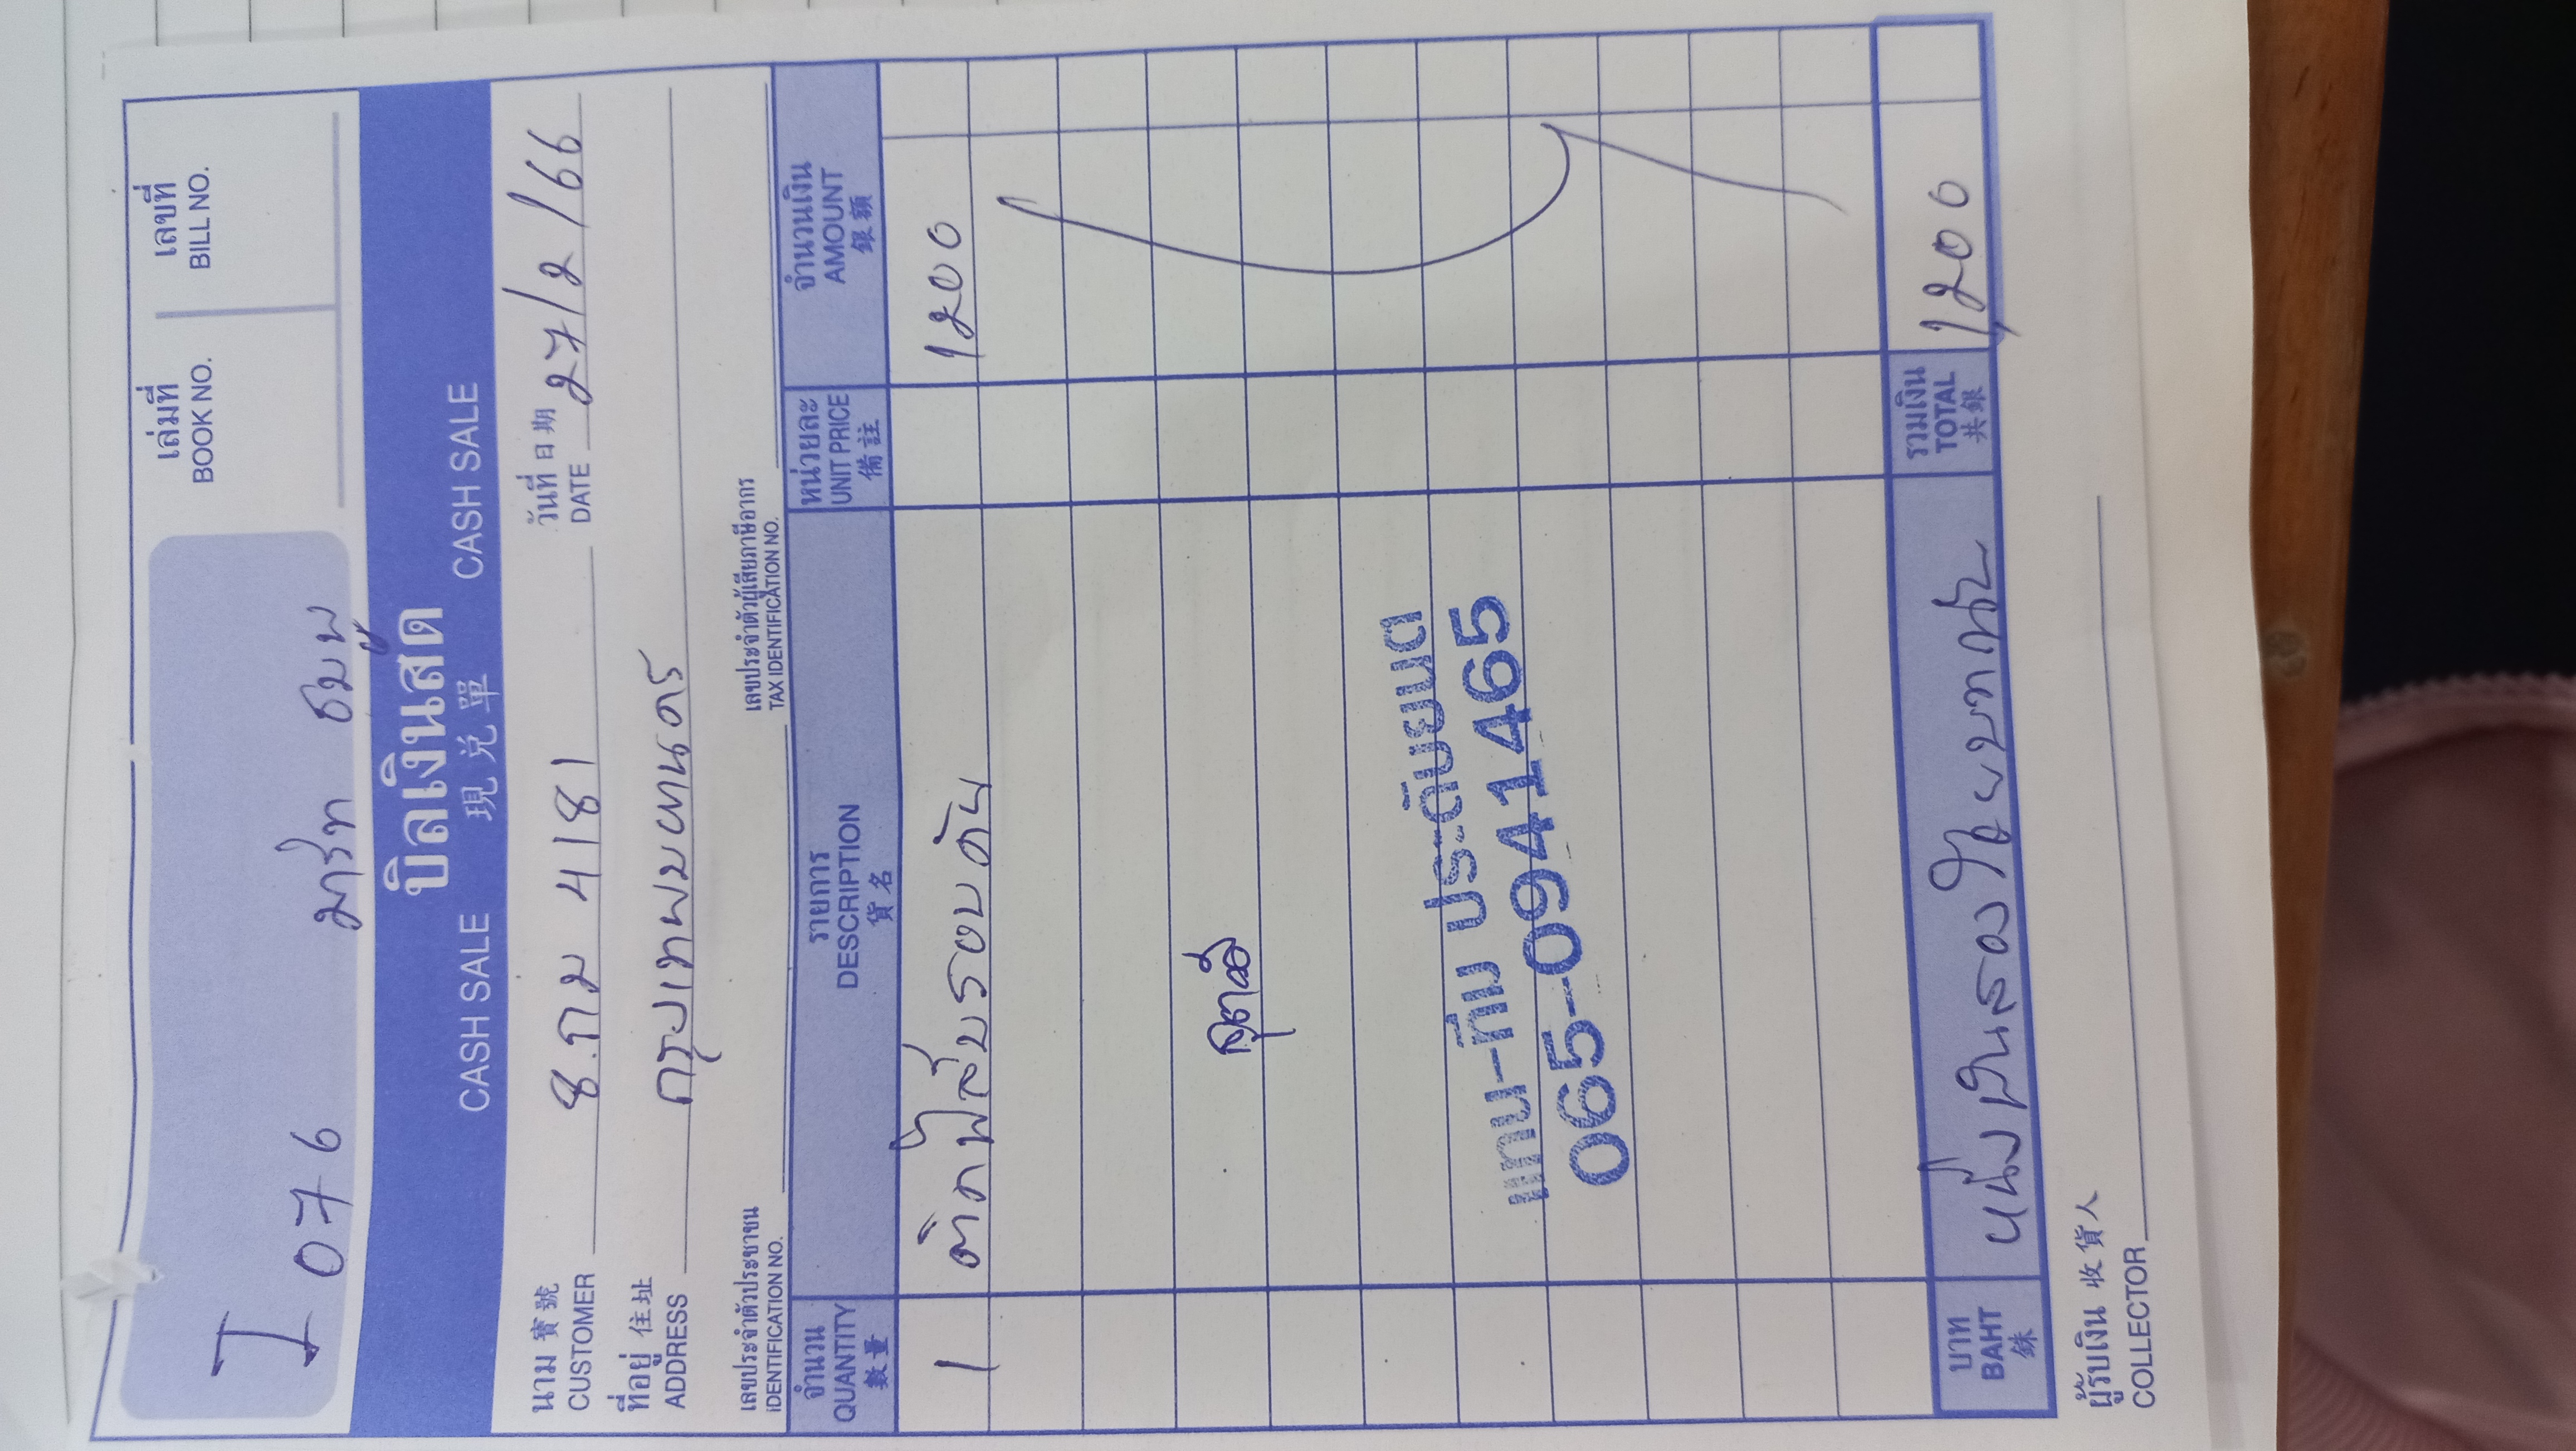 เล่มที่ เลขที่
BOOK NO. BILL NO.
I 076 มาร์ท ชมพู
บิลเงินสด
CASH SALE 現兌單 CASH SALE
นาม 寶號 8 กม 4181 วันที่ 日期 27/2/66
CUSTOMER DATE
ที่อยู่ 住址 กรุงเทพมหานคร
ADDRESS
เลขประจำตัวประชาชน เลขประจำตัวผู้เสียภาษีอากร
IDENTIFICATION NO. TAX IDENTIFICATION NO.
จำนวน รายการ หน่วยละ จำนวนเงิน
QUANTITY DESCRIPTION UNIT PRICE AMOUNT
數量 貨名 備註 銀額
1 ติดฟิล์มรอบคัน 1200
แทน-ทีม ประดับยนต์
065-0941465
บาท หนึ่งพันสองร้อยบาทถ้วน รวมเงิน 1,200
BAHT TOTAL
銖 共銀
ผู้รับเงิน 收貨人
COLLECTOR